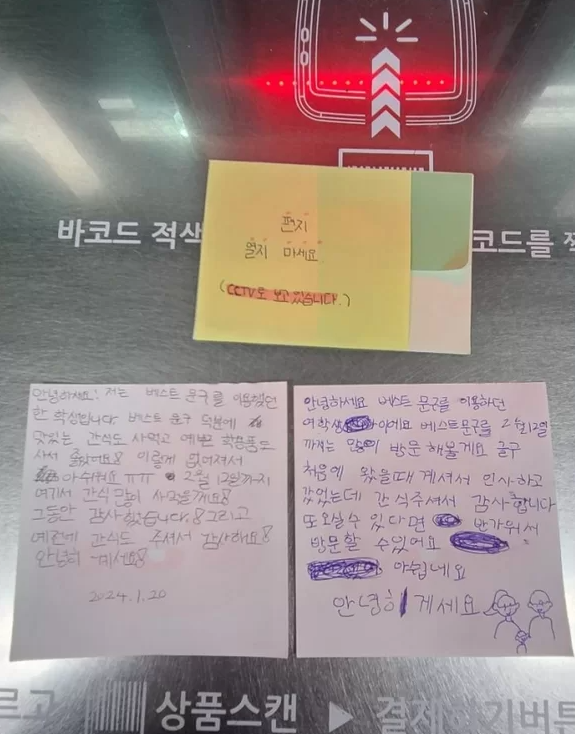 바코드 적색
코드를
편지
열지 마세요
(CCTV로 보고 있습니다.)
안녕하세요! 저는 베스트 문구를 이용했던
한 학생입니다. 베스트 문구 덕분에
맛있는 간식도 사먹고 예쁜 학용품도
사서 좋았어요! 이렇게 없어져서
아쉬워요 ㅠㅠ 2월 12일까지
여기서 간식 많이 사먹을께요!
그동안 감사했습니다! 그리고
예전에 간식도 주셔서 감사해요!
안녕히 계세요!
2024.1.20
안녕하세요 베스트 문구를 이용하던
여학생이에요 베스트문구를 2월12일
까지는 많이 방문 해볼게요 글구
처음에 왔을때 계셔서 인사하고
갔었는데 간식주셔서 감사합니다
또오실수 있다면 반가워서
방문할 수있어요
아쉽네요
안녕히 계세요
르고 상품스캔 ▶ 결제하기버튼